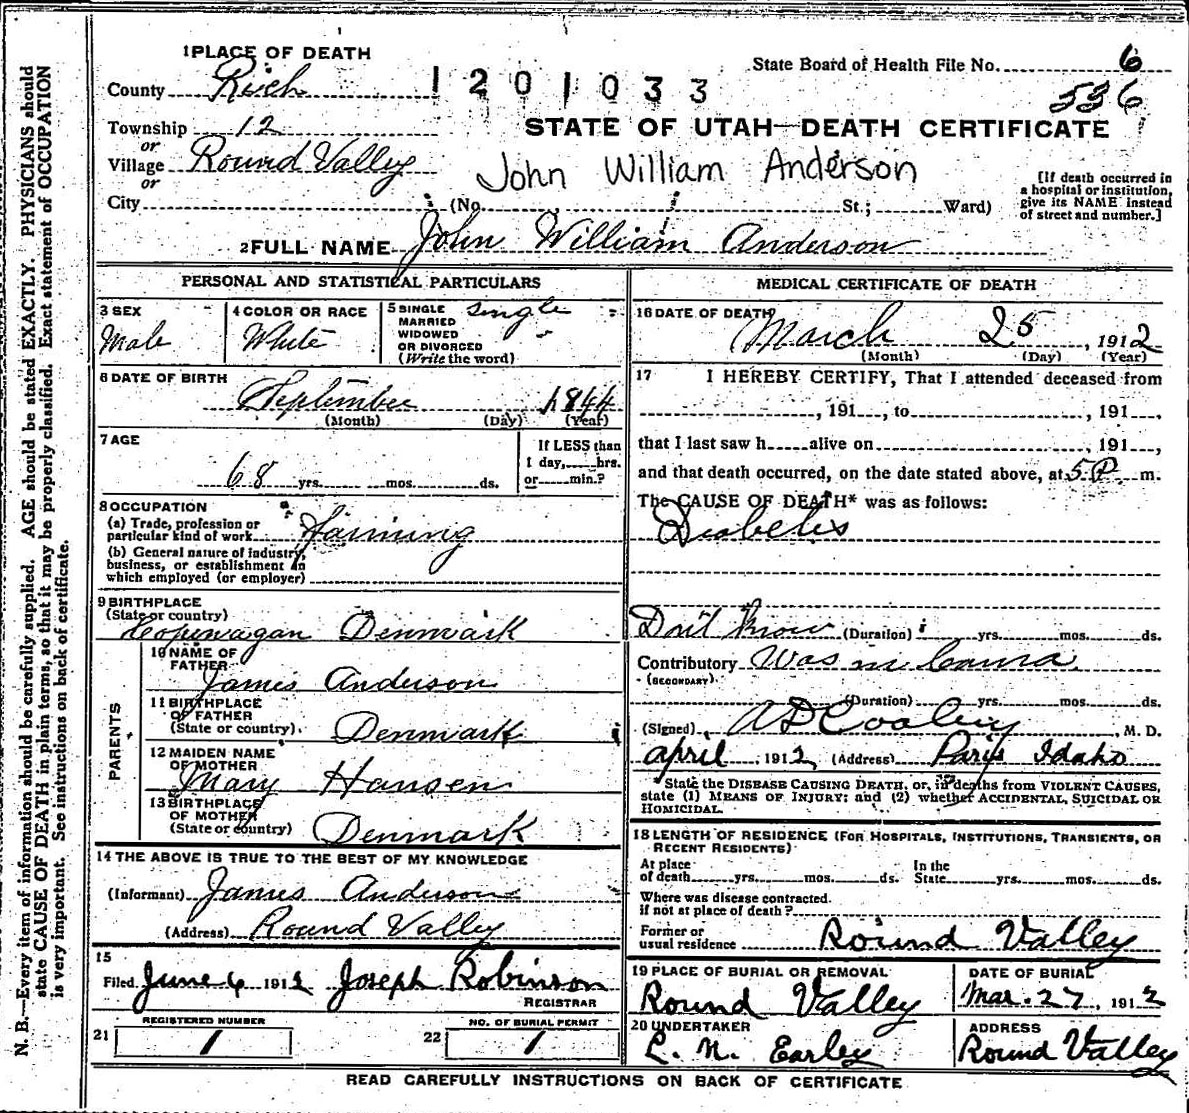 1 PLACE OF DEATH
County Rich
1201033
State Board of Health File No. 6
536
Township 12
or
Village Round Valley
or
City
STATE OF UTAH—DEATH CERTIFICATE
John William Anderson
(No. St.; Ward)
[If death occurred in
a hospital or institution,
give its NAME instead
of street and number.]
2 FULL NAME John William Anderson
PERSONAL AND STATISTICAL PARTICULARS
3 SEX
Male
4 COLOR OR RACE
White
5 SINGLE
MARRIED
WIDOWED
OR DIVORCED
(Write the word)
Single
6 DATE OF BIRTH
September 1844
(Month) (Day) (Year)
7 AGE
68 yrs. mos. ds.
If LESS than
1 day, hrs.
or min.?
8 OCCUPATION
(a) Trade, profession or
particular kind of work Farming
(b) General nature of industry,
business, or establishment in
which employed (or employer)
9 BIRTHPLACE
(State or country)
Copenwagan Denmark
PARENTS
10 NAME OF
FATHER
James Anderson
11 BIRTHPLACE
OF FATHER
(State or country) Denmark
12 MAIDEN NAME
OF MOTHER
Mary Hansen
13 BIRTHPLACE
OF MOTHER
(State or country) Denmark
14 THE ABOVE IS TRUE TO THE BEST OF MY KNOWLEDGE
(Informant) James Anderson
(Address) Round Valley
15
Filed June 6 1912 Joseph Robinson
REGISTRAR
21 REGISTERED NUMBER
1
22 NO. OF BURIAL PERMIT
1
MEDICAL CERTIFICATE OF DEATH
16 DATE OF DEATH
March 25, 1912
(Month) (Day) (Year)
17 I HEREBY CERTIFY, That I attended deceased from
, 191 , to , 191 ,
that I last saw h alive on , 191 ,
and that death occurred, on the date stated above, at 5 P m.
The CAUSE OF DEATH* was as follows:
Diabetes
Don't Know (Duration) yrs. mos. ds.
Contributory Was in Coma
(SECONDARY)
(Duration) yrs. mos. ds.
(Signed) A D Cooley, M. D.
April, 1912, (Address) Paris Idaho
*State the DISEASE CAUSING DEATH, or, in deaths from VIOLENT CAUSES,
state (1) MEANS OF INJURY; and (2) whether ACCIDENTAL, SUICIDAL OR
HOMICIDAL.
18 LENGTH OF RESIDENCE (FOR HOSPITALS, INSTITUTIONS, TRANSIENTS, OR
RECENT RESIDENTS)
At place
of death yrs. mos. ds.
In the
State yrs. mos. ds.
Where was disease contracted.
if not at place of death?
Former or
usual residence Round Valley
19 PLACE OF BURIAL OR REMOVAL
Round Valley
DATE OF BURIAL
Mar. 27, 1912
20 UNDERTAKER
L. N. Earley
ADDRESS
Round Valley
READ CAREFULLY INSTRUCTIONS ON BACK OF CERTIFICATE
N. B.—Every item of information should be carefully supplied. AGE should be stated EXACTLY. PHYSICIANS should
state CAUSE OF DEATH in plain terms, so that it may be properly classified. Exact statement of OCCUPATION
is very important. See instructions on back of certificate.